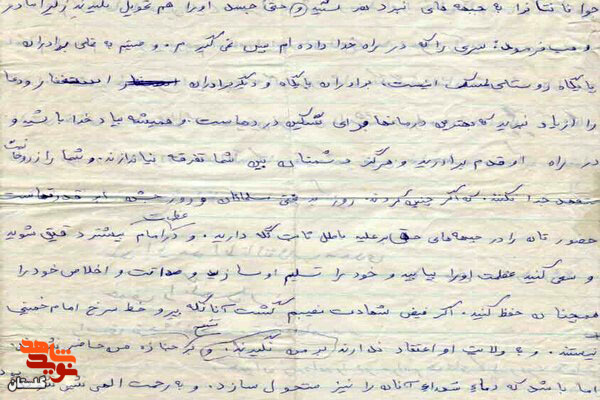 جوانانتان را به جبهه های نبرد هر نشید و حتی جسد او را هم تحویل نگیرید زیرا مادر
وهب فرمود: سری را که در راه خدا داده ام پس نمی گیرم. و
پایگاه روستای برادران پایگاه و دیگر برادران استغفار و دعا
را از یاد نبرید که بهترین درمانها برای تسکین دردهاست. و همیشه بیاد خدا باشید و
در راه او قدم بردارید و هرگز دشمنان بین شما تفرقه نیاندازند. و شما را از روحانیت
متعهد جدا نکنند. که اگر چنین کردند. روز بدبختی مسلمانان و روز جشن ابر قدرتهاست
حضورتان را در جبهه های حق بر علیه باطل ثابت نگه دارید. و در عظمت امام بیشتر دقیق شوید
و سعی کنید عظمت او را بیابید و خود را تسلیم او سازید و صداقت و اخلاص خود را
همچنان حفظ کنید. اگر فیض شهادت نصیبم گشت آنانکه پیرو خط سرخ امام خمینی
نیستند. و به ولایت او اعتقاد ندارند بر من نگریند. و بر جنازه من حاضر نشوند.
اما باشد که دماء شهداء آنان را نیز متحول سازد. و به رحمت الهی
نوید شاهد
گلستان